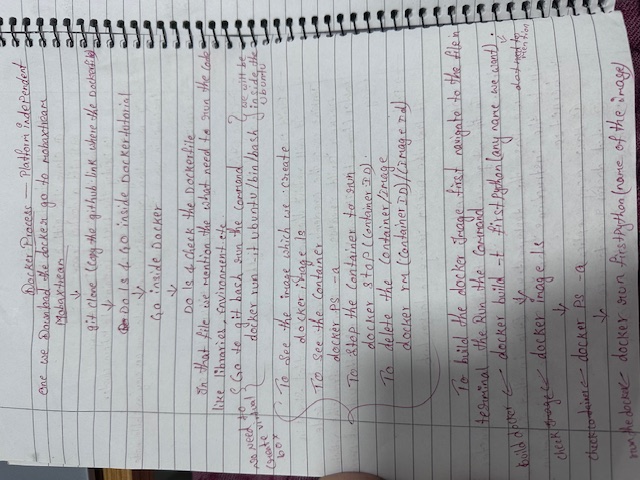 Docker Process — Platform independent
One we Download the docker go to mobaxtream
Mobaxtream
git clone (copy the github link where the Dockerfile)
Do ls & GO inside Dockertutorial
Go inside Docker
Do ls & check the Dockerfile
In that file we mention the what need to run the code
like libraries, Environment etc.
no need to create virtual box
Go to git bash run the command
docker run -it ubuntu/bin/bash
we will be inside the Ubuntu
To See the image which we create
docker image ls
To See the Container
docker PS -a
To Stop the Container to run
docker stop (Container ID)
To delete the Container/Image
docker rm (Container ID)/(Image Id)
To build the docker Image first navigate to the file in
terminal the Run the Command
build docker docker build -t firstpython (any name we want) .
dot need to mention
check Image docker image ls
check container docker PS -a
run the docker docker run firstpython (name of the image)